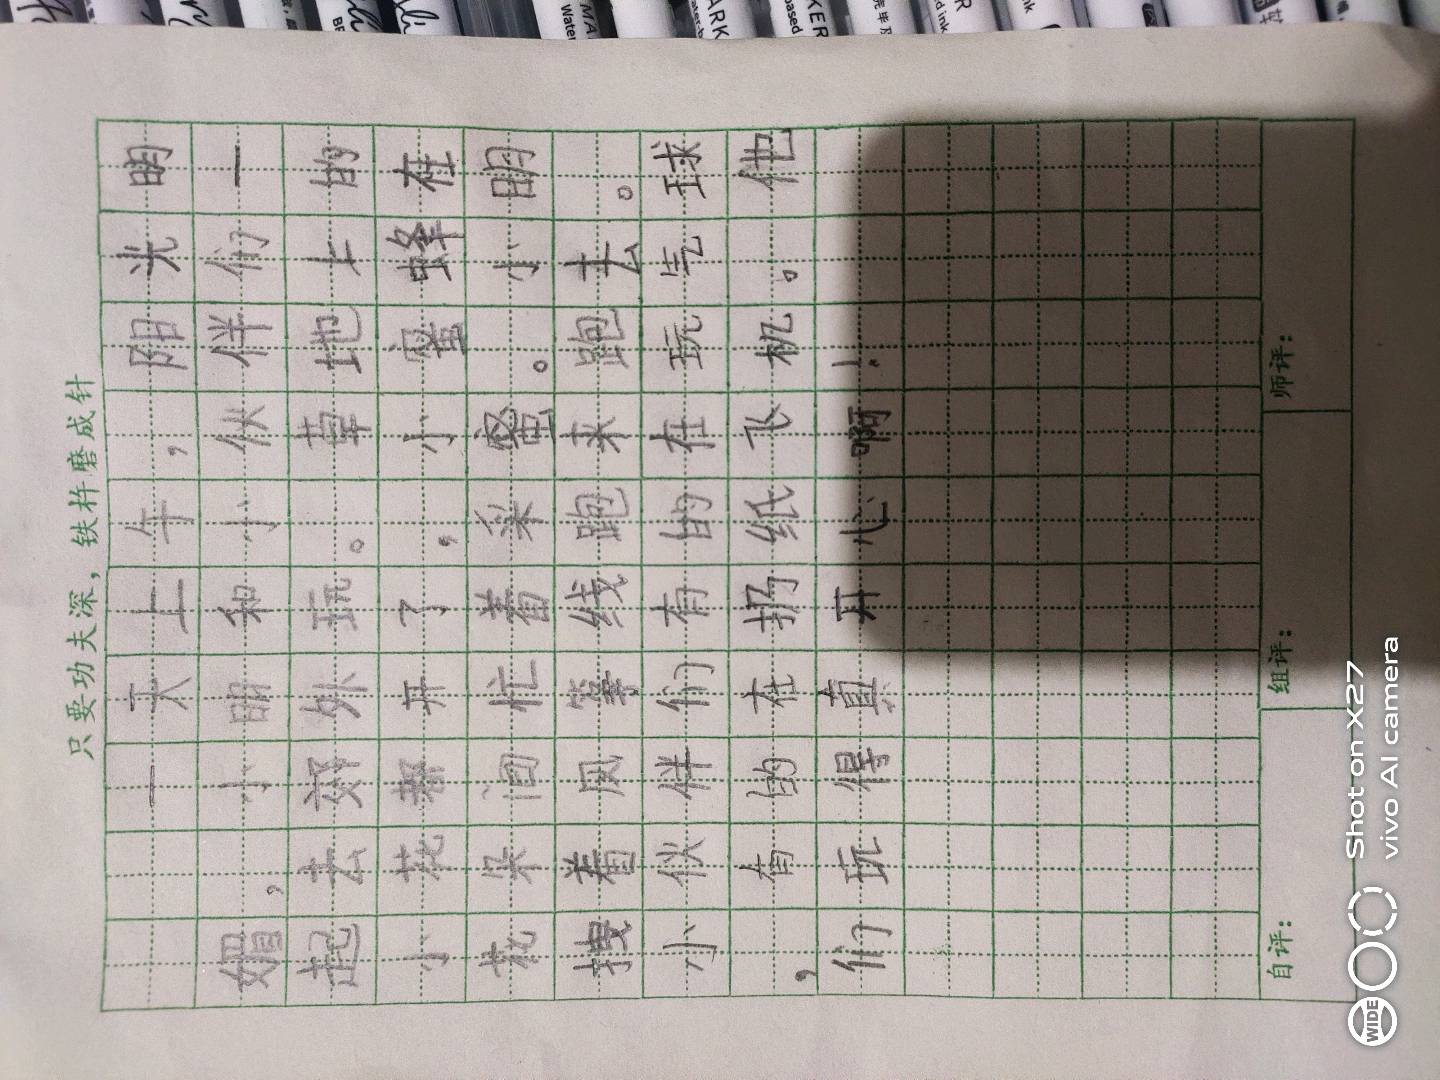 只要功夫深，铁杵磨成针
一天上午，阳光明
媚，小明和小伙伴们一
起去郊外玩。草地上的
小花都开了，小蜜蜂在
花朵间忙着采蜜。小明
拽着风筝线跑来跑去。
小伙伴们有的在玩气球
，有的在扔纸飞机。他
们玩得真开心啊！
自评： 组评： 师评：
WIDE
Shot on X27
vivo AI camera